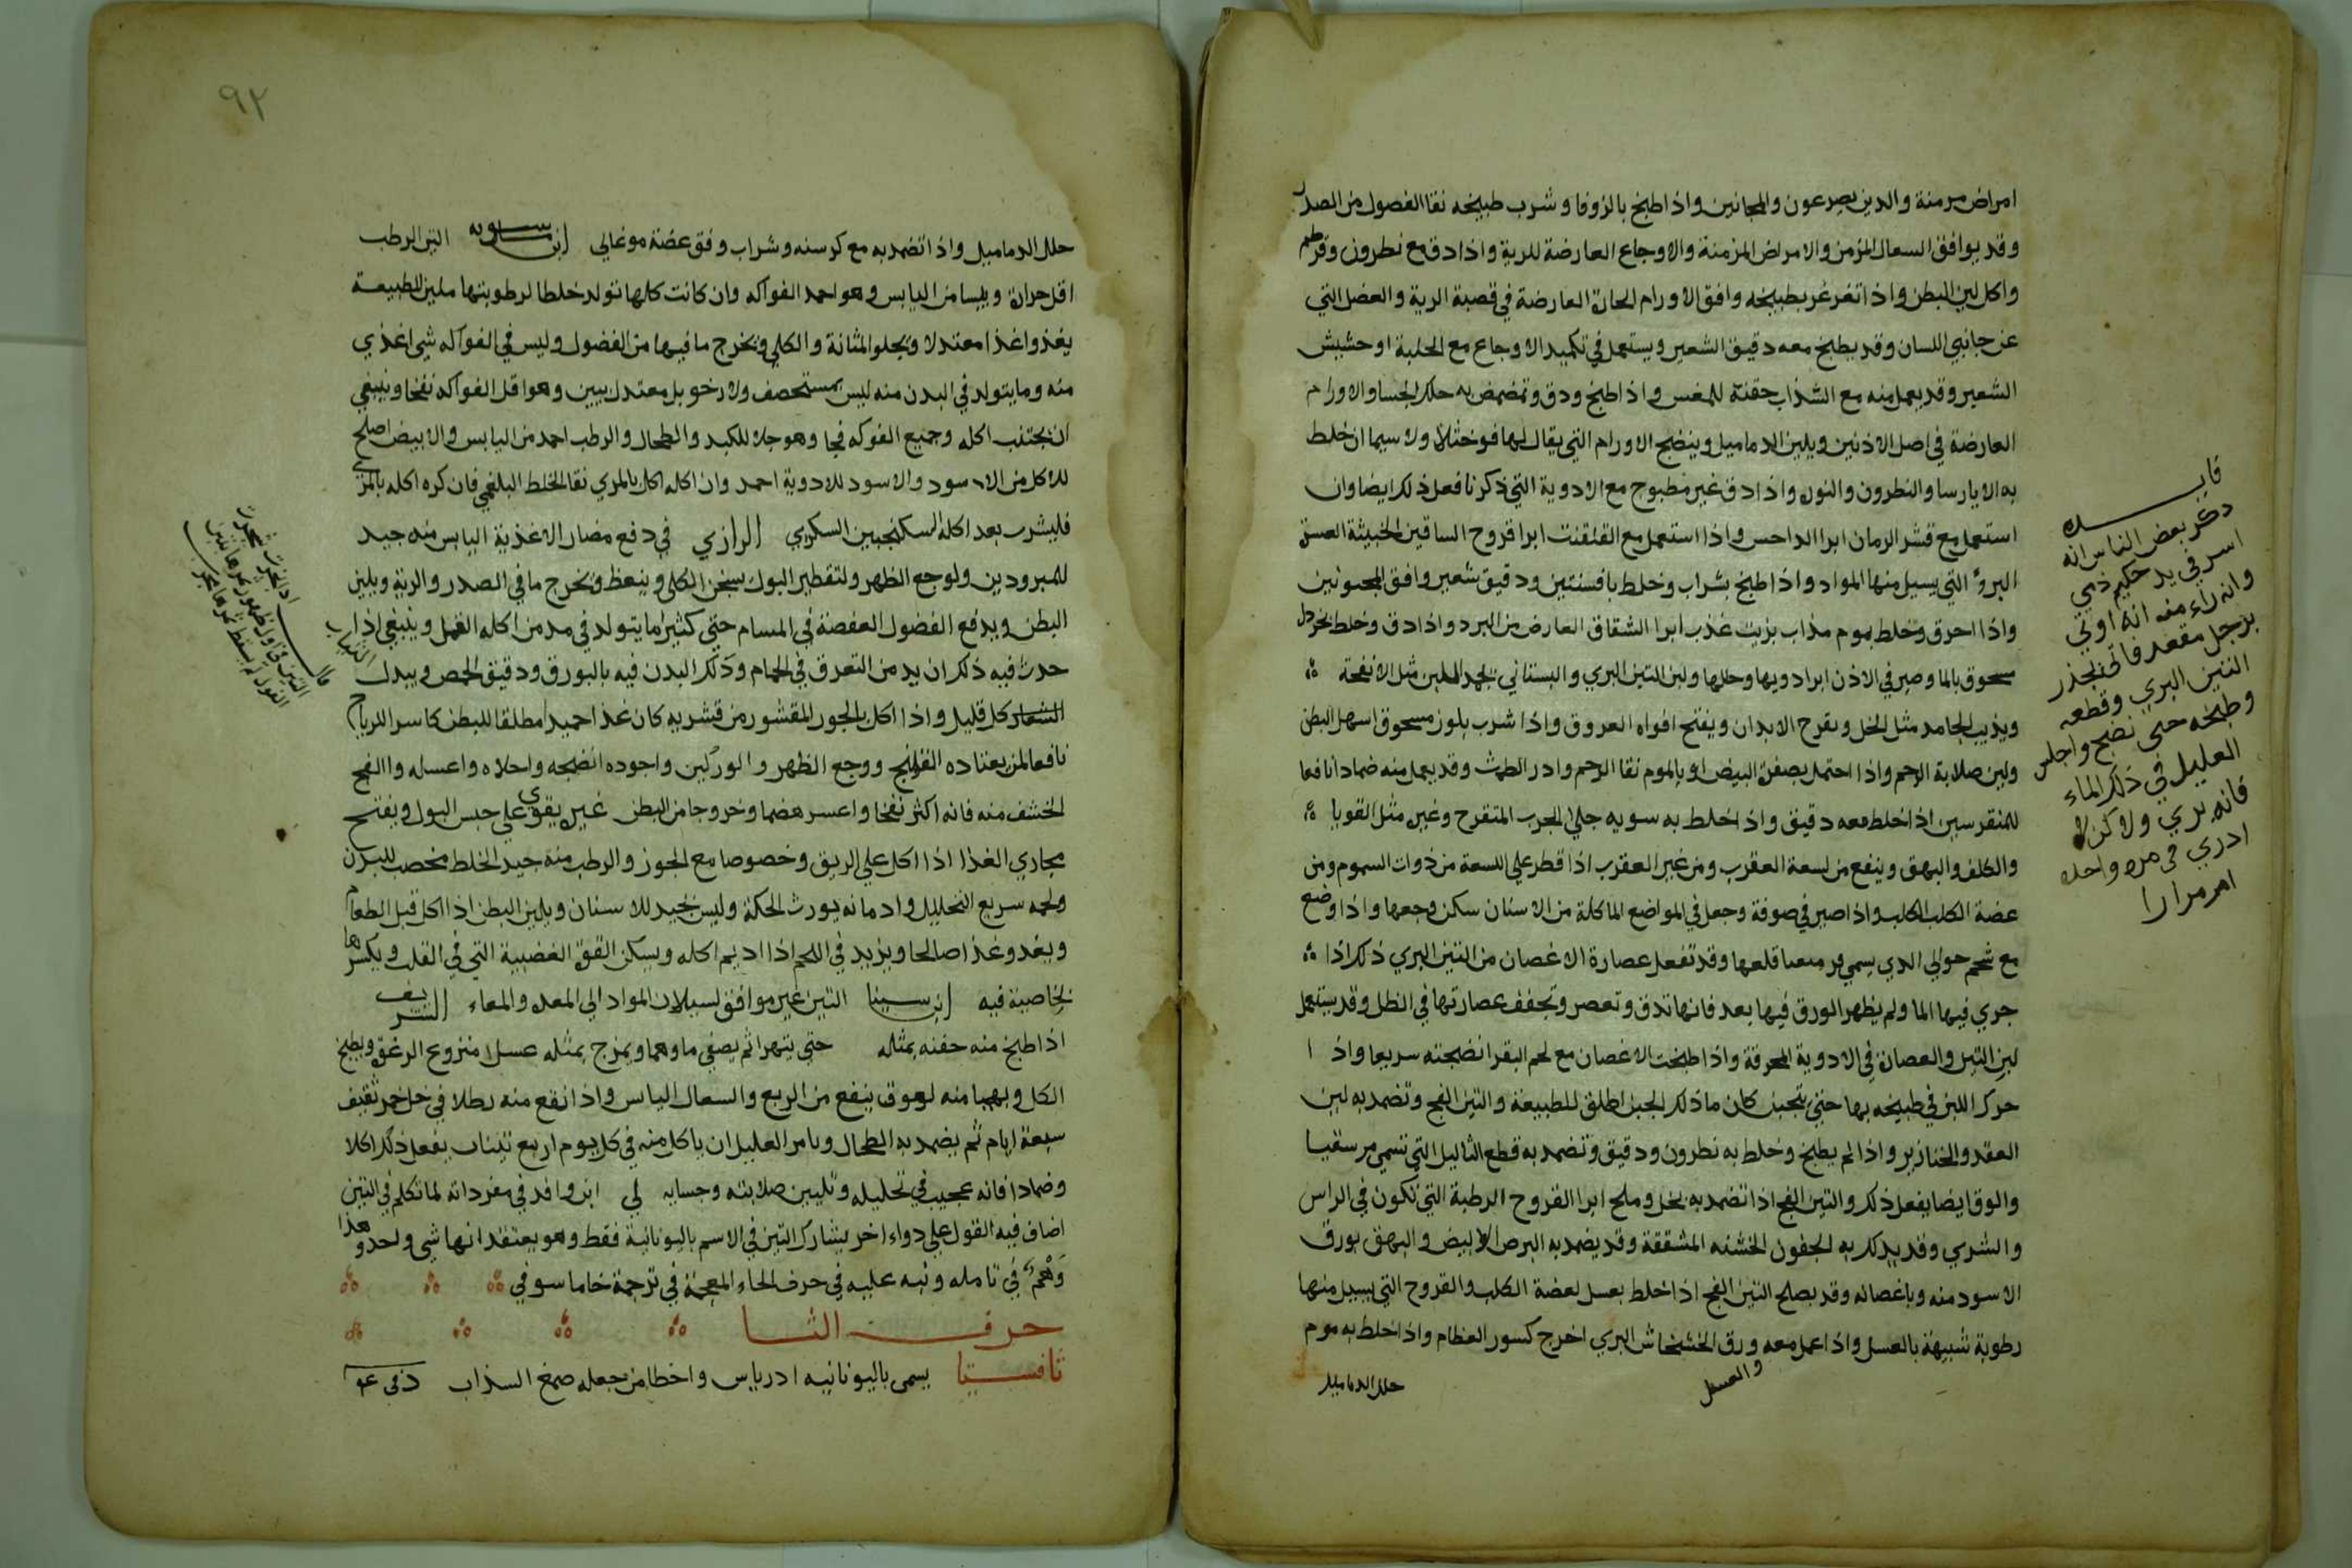 امراض مزمنة والدين يصرعون والمجانين واذا طبخ بالزوفا وشرب طبيخه نقا الفضول من الصدر
وقد يوافق السعال المزمن والامراض المزمنة والاوجاع العارضة للرية واذا دق مع نطرون وقرطم
واكل لين البطن واذا تغرغر بطبيخه وافق الاورام الحارة العارضة في قصبة الرية والعضل التي
عن جانبي اللسان وقد يطبخ معه دقيق الشعير ويستعمل في تكميد الاوجاع مع الحلبة او حشيش
الشعير وقد يعمل منه مع الشذاب حقنة للمغس واذا طبخ ودق وتضمض به حلل الجسا والاورام
العارضة في اصل الاذنين ويلين الدماميل وينضج الاورام التي يقال لها فوخثلا ولا سيما ان خلط
به الايارسا والنطرون والنورة واذا دق غير مطبوخ مع الادوية التي ذكرنا فعل ذلك ايضا وان
استعمل مع قشر الرمان ابرا الداحس واذا استعمل مع القلقنت ابرا قروح الساقين الخبيثة العسرة
البرؤ التي يسيل منها المواد واذا طبخ بشراب وخلط بافسنتين ودقيق شعير وافق المحبونين
واذا احرق وخلط بموم مذاب بزيت عذب ابرا الشقاق العارض من البرد واذا دق وخلط بخردل
مسحوق بالما وصير في الاذن ابرا دويها وحللها ولبن التين البري والبستاني يجمد اللبن مثل الانفحة
ويذيب الجامد مثل الخل ويقرح الابدان ويفتح افواه العروق واذا شرب بلوز مسحوق اسهل البطن
ولين صلابة الرحم واذا احتمل بصفرة البيض او بالموم نقا الرحم وادر الطمث وقد يعمل منه ضمادا نافعا
للمنقرسين اذا خلط معه دقيق واذا خلط به سويه جلا الجرب المتقرح وغير مثل القوبا
والكلف والبهق وينفع من لسعة العقرب ومن غير العقرب اذا قطر على اللسعة من ذوات السموم ومن
عضة الكلب الكلب واذا صير في صوفة وجعل في المواضع الماكلة من الاسنان سكن وجعها واذا وضع
مع شحم حوالي الدي يسمي مرميعا قلعها وقد تفعل عصارة الاغصان من التين البري ذلك اذا
جري فيها الما ولم يظهر الورق فيها بعد فانها تدق وتعصر وتجفف عصارتها في الظل وقد يستعمل
لبن التين والعصارة في الادوية المحرقة واذا طبخت الاغصان مع لحم البقر انضجته سريعا واذا
حرك اللبن في طبيخه بها حتي يتجبن كان ماذلك الجبن اطلق للطبيعة والتين الفج وتضمد به لين
العقد والخنازير واذا لم يطبخ وخلط به نطرون ودقيق وتضمد به قطع الثاليل التي تسمي مرسقيا
والورق ايضا يفعل ذلك والتين الفج اذا تضمد به بخل وملح ابرا القروح الرطبة التي تكون في الراس
والشري وقد يدلك به الجفون الخشنه المشققة وقد يضمد به البرص الابيض والبهق بورق
الاسود منه وباغصانه وقد يصلح التين الفج اذا خلط بعسل لعضة الكلب والقروح التي يسيل منها
رطوبة شبيهة بالعسل واذا عمل معه ورق الخشخاش البري اخرج كسور العظام واذا خلط به موم
والعسل
حلل الدماميل
فايده
ذكر بعض الناس انه
اسر في يد حكيم ذمي
وانه راء منه انه اوتي
برجل مقعد فاخذ بجذر
التين البري وقطعه
وطبخه حتى نضج واجلس
العليل في ذلك الماء
فانه بري ولاكن لا
ادري في مره واحده
امر مرارا
٩٢
حلل الدماميل واذا تضمد به مع كرسنه وشراب وفق عضة موغالي ابن ماسويه التين الرطب
اقل حرارة ويبسا من اليابس وهو احمد الفواكه وان كانت كلها تولد خلطا لرطوبتها ملين للطبيعة
يغذوا غذا معتدلا ويجلو المثانة والكلي ويخرج ما فيها من الفضول وليس في الفواكه شي اغذي
منه وما يتولد في البدن منه ليس بمستحصف ولا رخو بل معتدل يبين وهو اقل الفواكه نفخا وينبغي
ان يجتنب اكله وجميع الفوكه فجا وهو جلا للكبد والطحال والرطب احمد من اليابس والابيض اصلح
للاكل من الاسود والاسود للادوية احمد وان اكله اكل بالمري نقا الخلط البلغمي فان كره اكله بالمري
فليشرب بعد اكله السكنجبين السكري الرازي في دفع مضار الاغذية اليابس منه جيد
للمبرودين ولوجع الظهر ولتقطير البول يسخن الكلي وينعظ ويخرج ما في الصدر والرية ويلين
البطن ويدفع الفضول العفصة في المسام حتي كثيرا ما يتولد في مدمن اكله القمل وينبغي اذا
حدث فيه ذلك ان يدمن التعرق في الحمام ودلك البدن فيه بالبورق ودقيق الحمص ويبدل الثياب
كل قليل واذا اكل بالجوز المقشور من قشريه كان غذا حميدا مطلقا للبطن كاسرا للرياح
نافعا لمن يعتاده القولنج ووجع الظهر والوركين واجوده انضجه واحلاه واعسله واالفج
الخشف منه فانه اكثر نفخا واعسر هضما وخروجا من البطن غيره يقوي علي حبس البول ويفتح
مجاري الغذا اذا اكل علي الريق وخصوصا مع الجوز والرطب منه جيد الخلط مخصب للبدن
ولحمه سريع التحليل وادمانه يورث الحكة وليس بجيد للاسنان ويلين البطن اذا اكل قبل الطعام
ويغدو غذا صالحا ويزيد في اللحم اذا اديم اكله ويسكن القوة الغضبية التي في القلب ويكسرها
بخاصية فيه ابن سينا التين غير موافق لسيلان المواد الي المعده والمعاء الشريف
اذا طبخ منه حفنه بمثله حتى يتهرا ثم يصفي ماوهما ويمزج بمثله عسلا منزوع الرغوة ويطبخ
الكل ويهيا منه لعوق ينفع من الربع والسعال اليابس واذا نقع منه رطلا في خل خمر ثقيف
سبعة ايام ثم يضمد به الطحال ويامر العليل ان ياكل منه في كل يوم اربع تينات يفعل ذلك اكلا
وضمادا فانه عجيب في تحليله وتليين صلابته وجسايه لي ابن وافد في مفرداته لما تكلم في التين
اضاف فيه القول علي دواء اخر يشارك التين في الاسم باليونانية فقط وهو يعتقد انها شي واحد وهذا
وهم في تامله ونبه عليه في حرف الخاء المعجمة في ترجمة خاما سوفي
حرف الثا
ثافسيا يسمى باليونانيه ادرياس واخطا من جعله صمغ السذاب